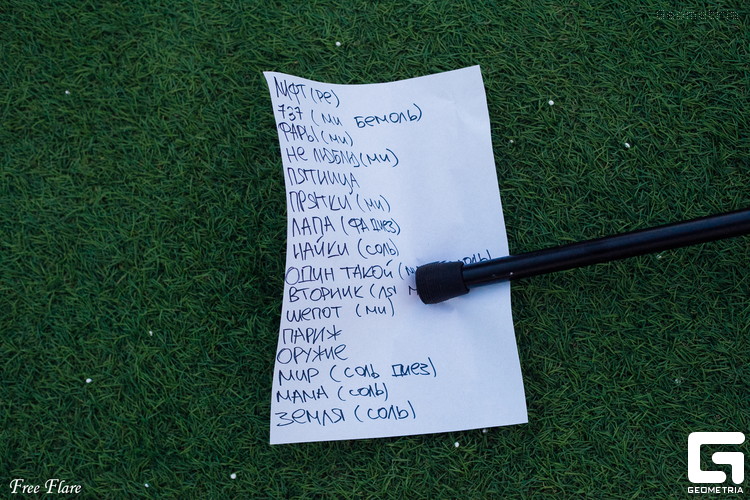 ЛИФТ (РЕ)
737 (МИ БЕМОЛЬ)
ФАРЫ (МИ)
НЕ ЛЮБЛЮ (МИ)
ПЯТНИЦА
ПРЯТКИ (МИ)
ЛАПА (ФА ДИЕЗ)
НАЙКИ (СОЛЬ)
ОДИН ТАКОЙ
ВТОРНИК (ЛЯ
ШЕПОТ (МИ)
ПАРИЖ
ОРУЖИЕ
МИР (СОЛЬ ДИЕЗ)
МАМА (СОЛЬ)
ЗЕМЛЯ (СОЛЬ)
Free Flare
GEOMETRIA